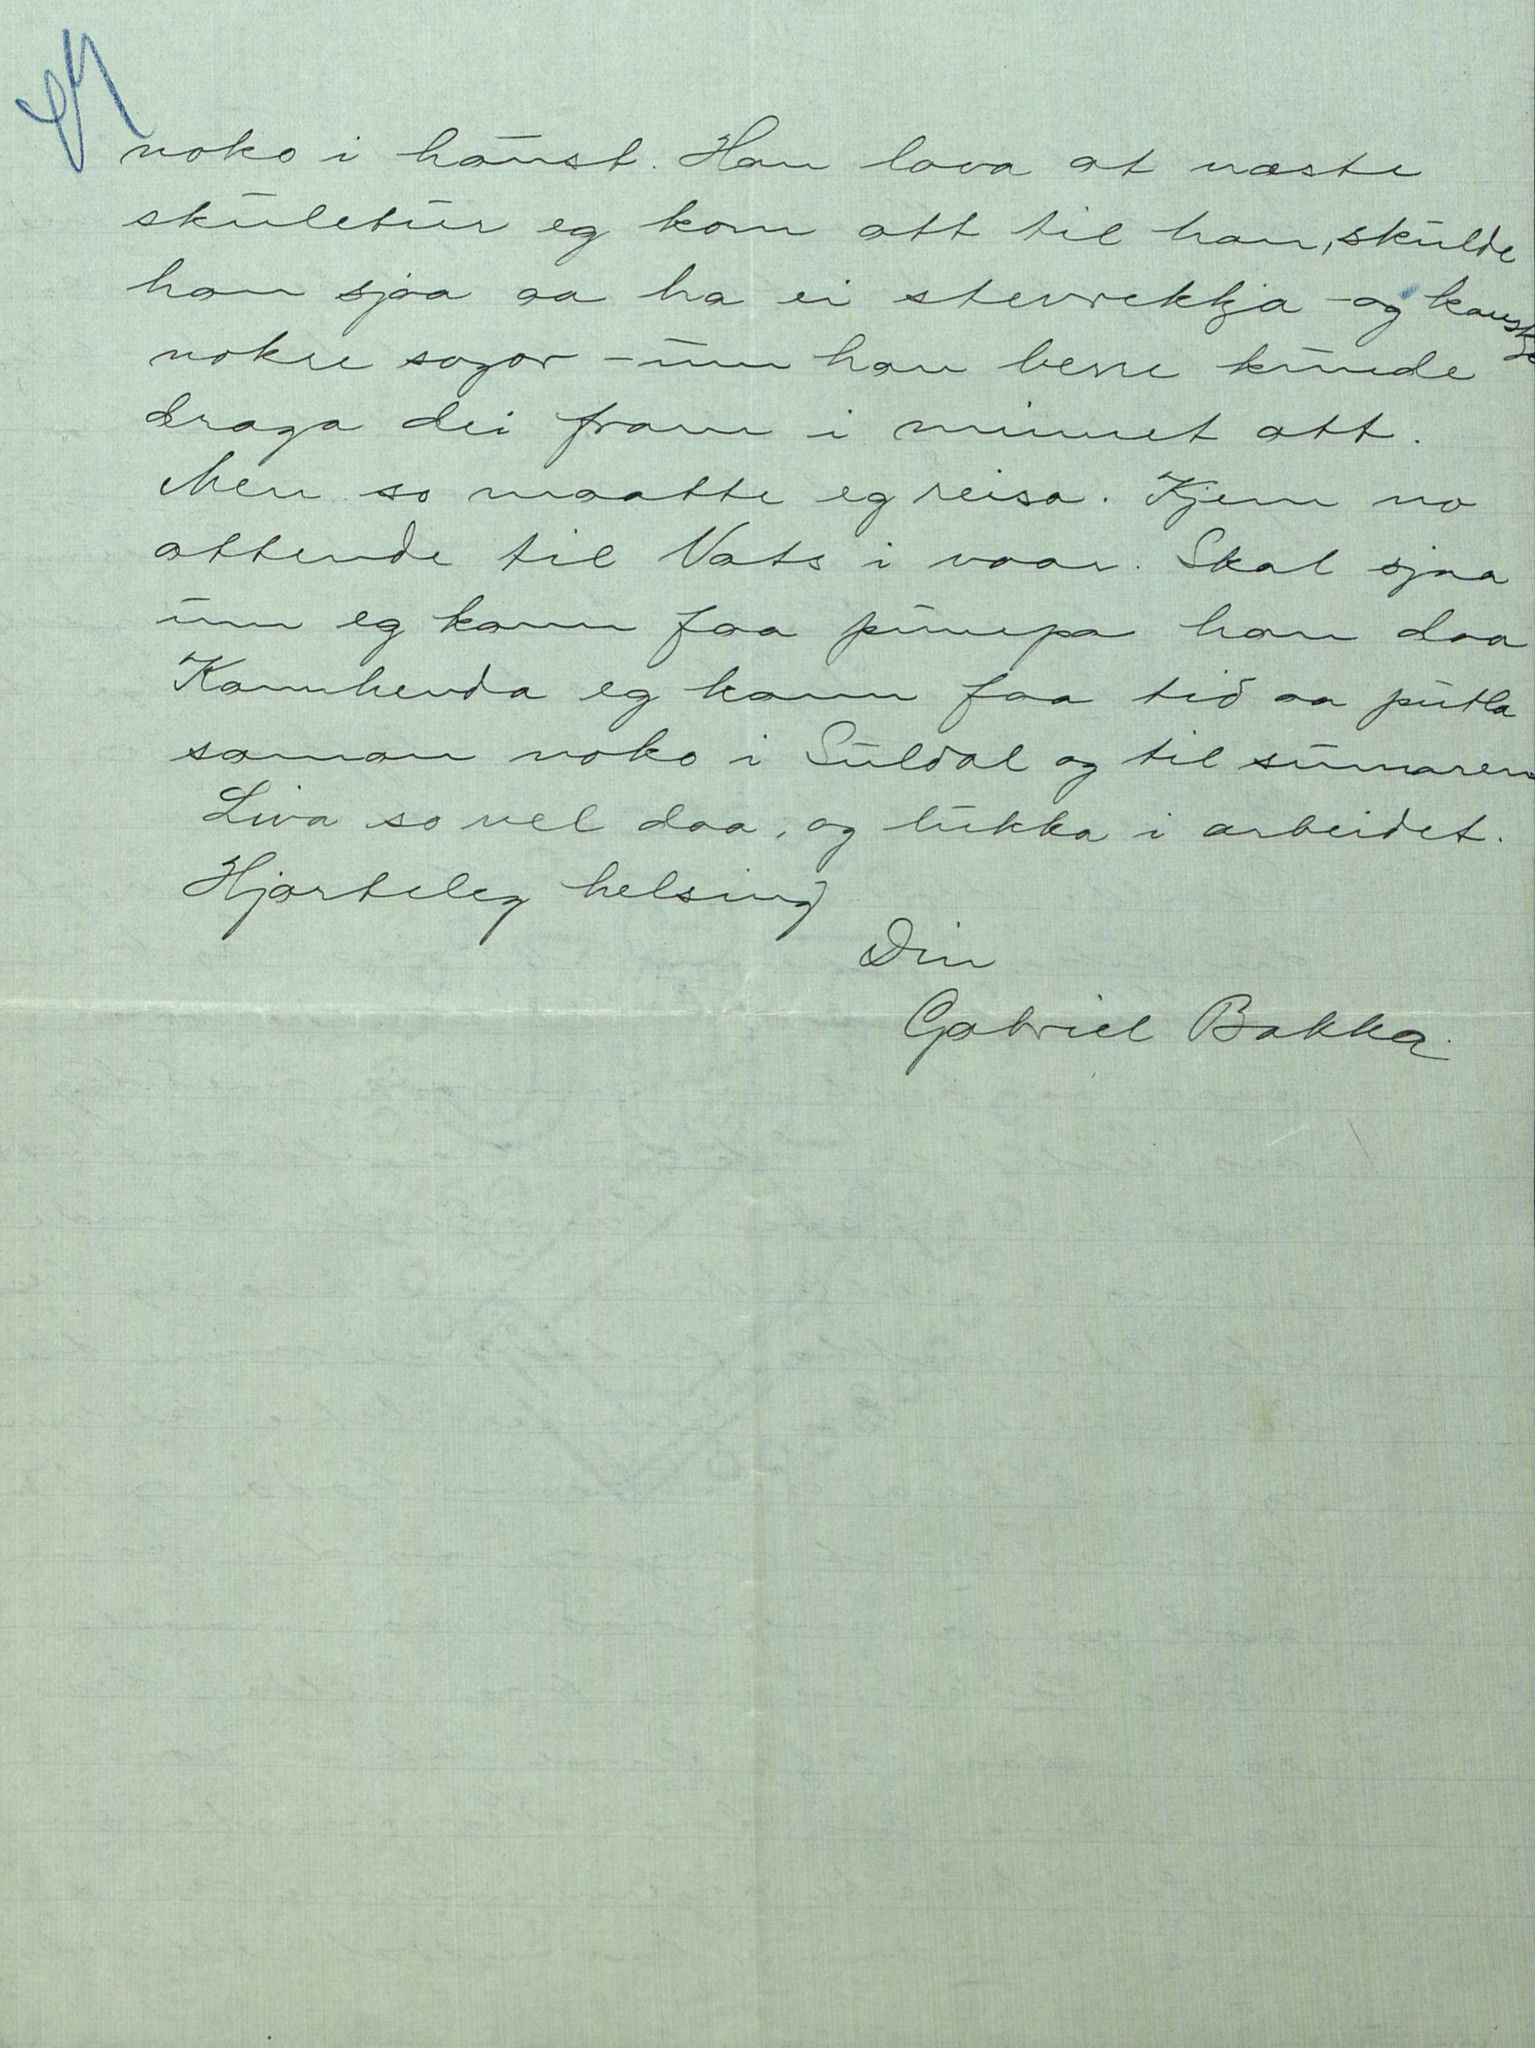 noko i haust. Han lova at næste
skuletur eg kom att til han, skulde
han sjaa aa ha ei stevrekkja – og kanskje
nokre sogor – um han berre kunde
draga dei fram i minnet att.
Men so maatte eg reisa. Kjem no
attende til Vats i vaar. Skal sjaa
um eg kann faa pumpa han daa
Kannhenda eg kann faa tid aa putla
saman noko i Suldal og til sumaren
Liva so vel daa, og lukka i arbeidet.
Hjarteleg helsing
Din
Gabriel Bakka.